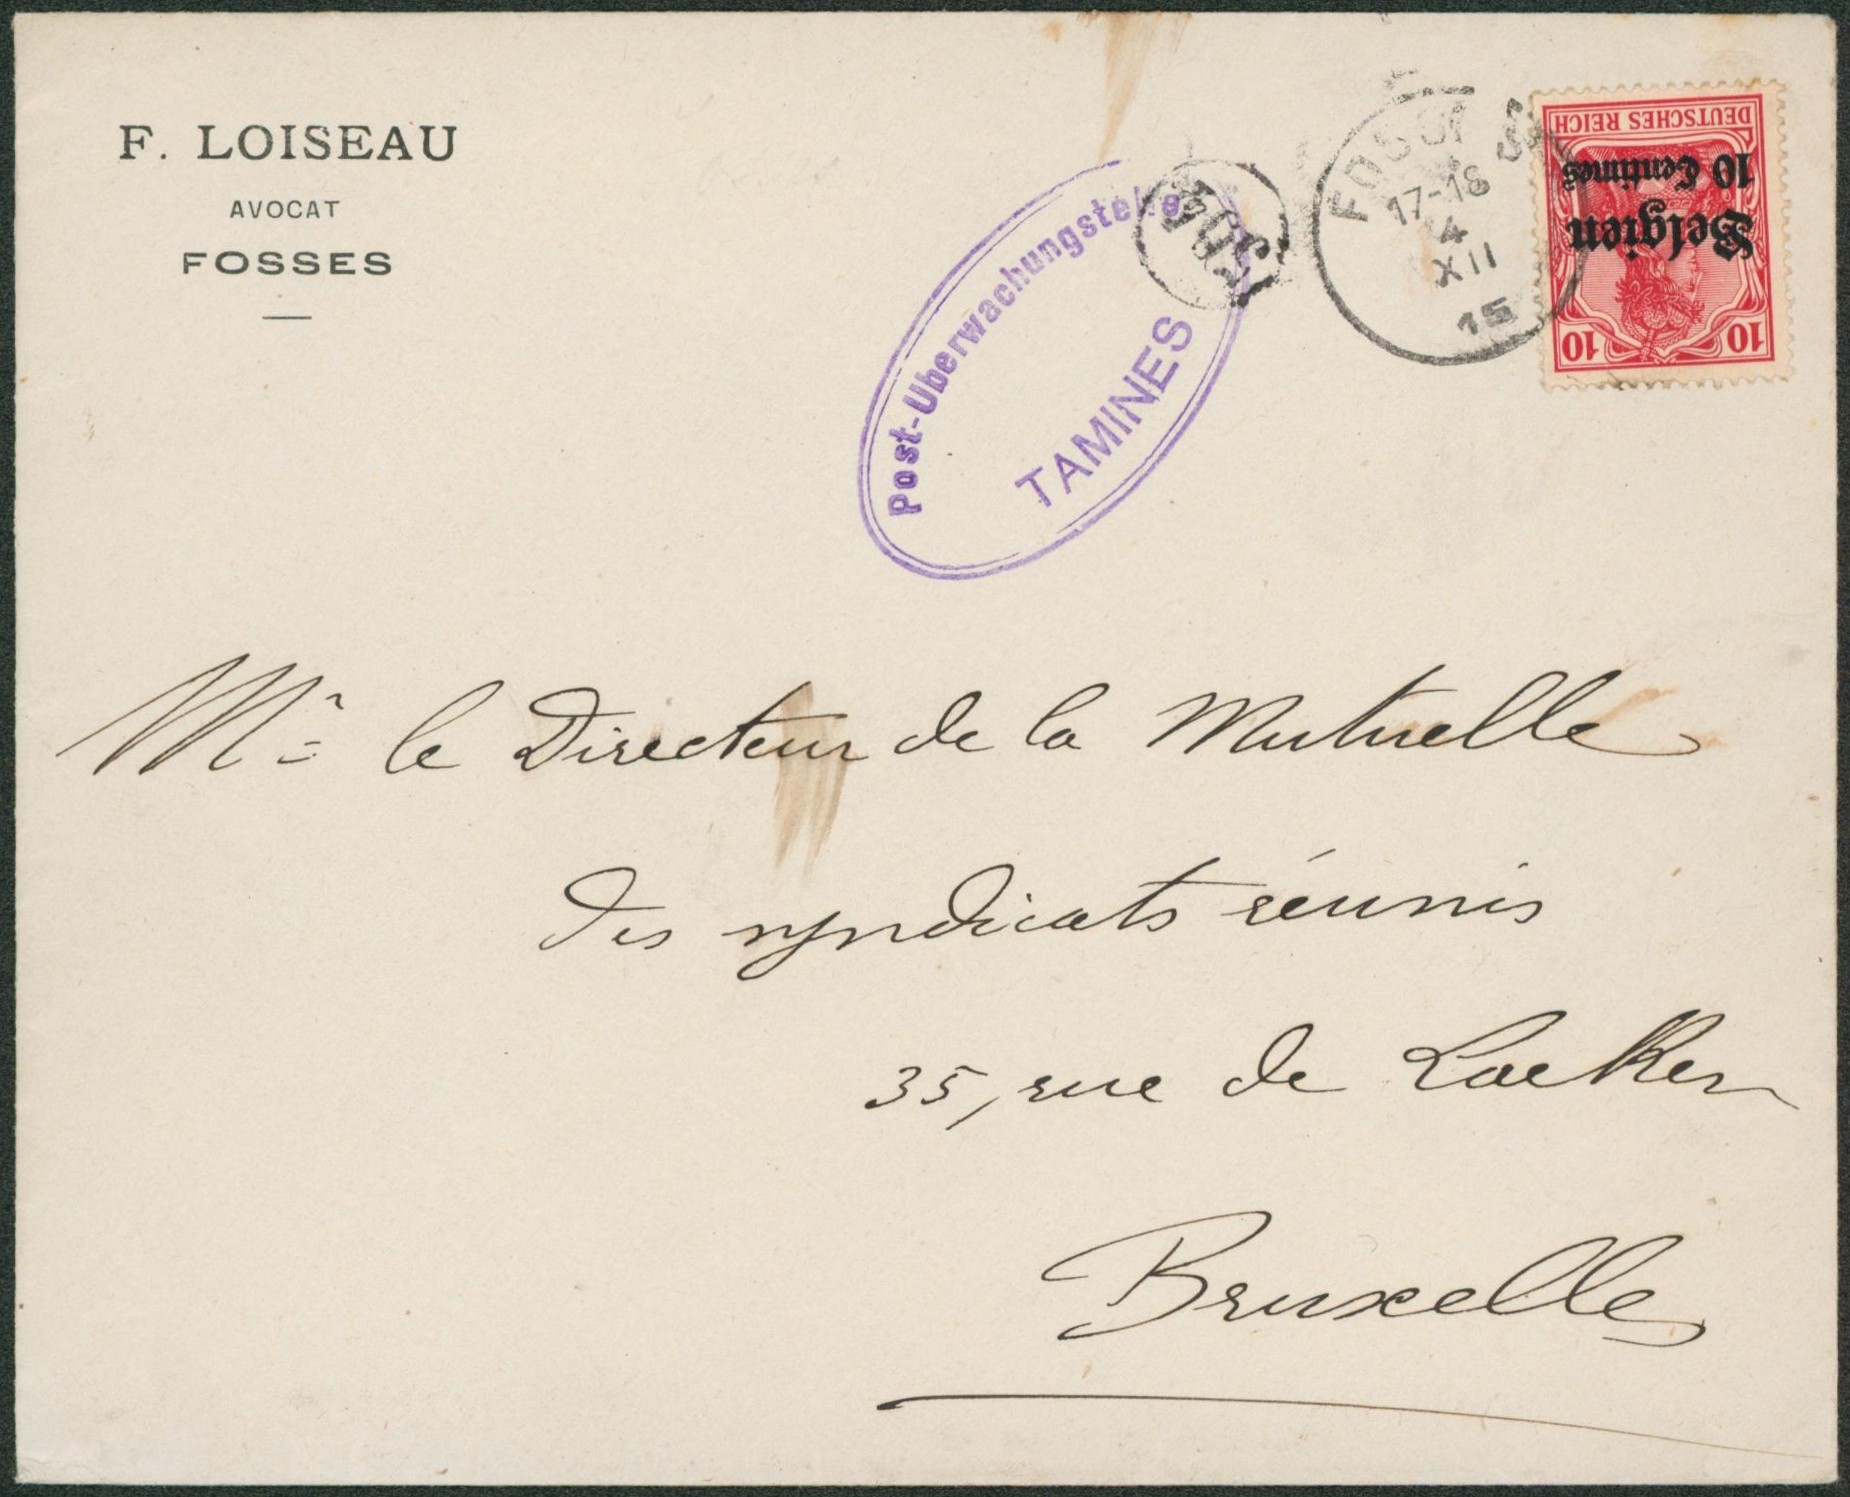 F. LOISEAU
AVOCAT
FOSSES
Post-Uberwachungstelle
TAMINES
17-18
4
XII
15
DEUTSCHES REICH
10 Centimes
Belgien
10 10
Mr le Directeur de la Mutuelle
des syndicats réunis
35, rue de Laeken
Bruxelles